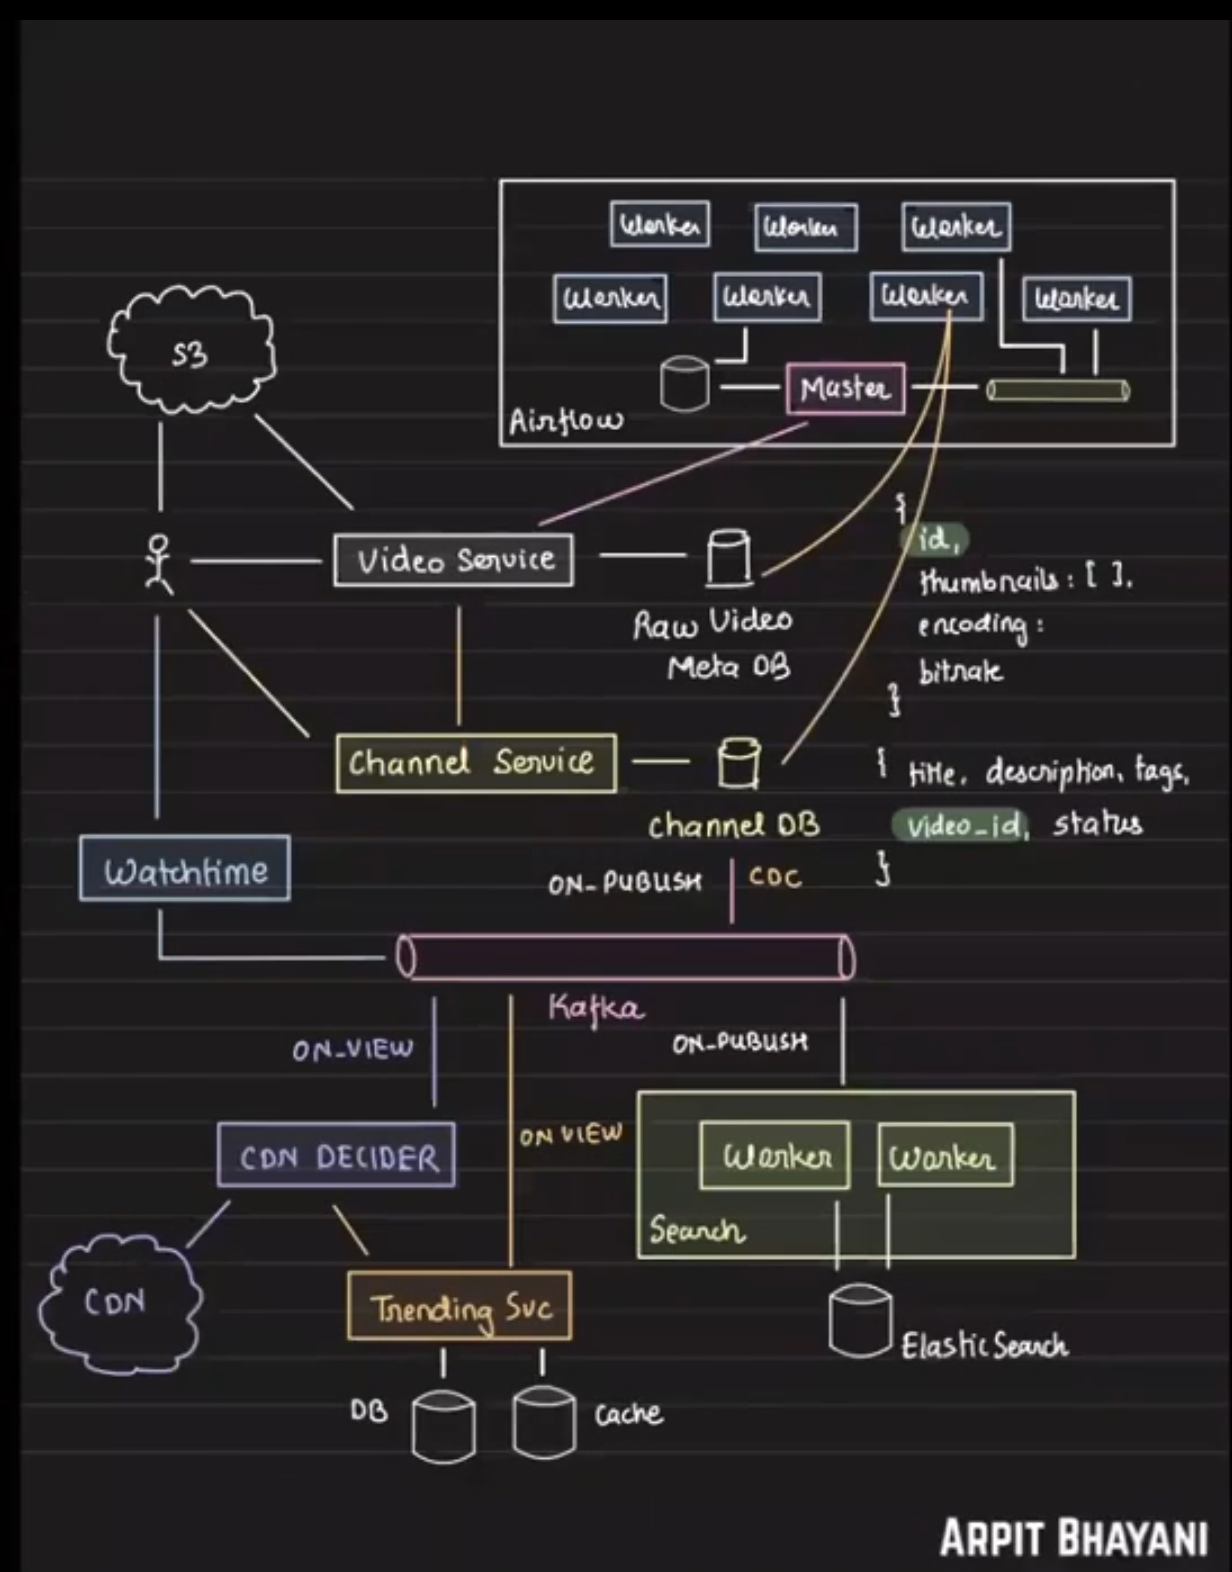 Worker Worker Worker
Worker Worker Worker Worker
S3
Master
Airflow
{
id,
Video Service
thumbnails : [ ],
Raw Video
encoding :
Meta DB
bitrate
}
Channel Service
{ title, description, tags,
Channel DB
video_id, status
Watchtime
ON-PUBLISH CDC
}
Kafka
ON_VIEW
ON_PUBLISH
ON VIEW
CDN DECIDER
Worker Worker
Search
CDN
Trending Svc
Elastic Search
DB
Cache
ARPIT BHAYANI